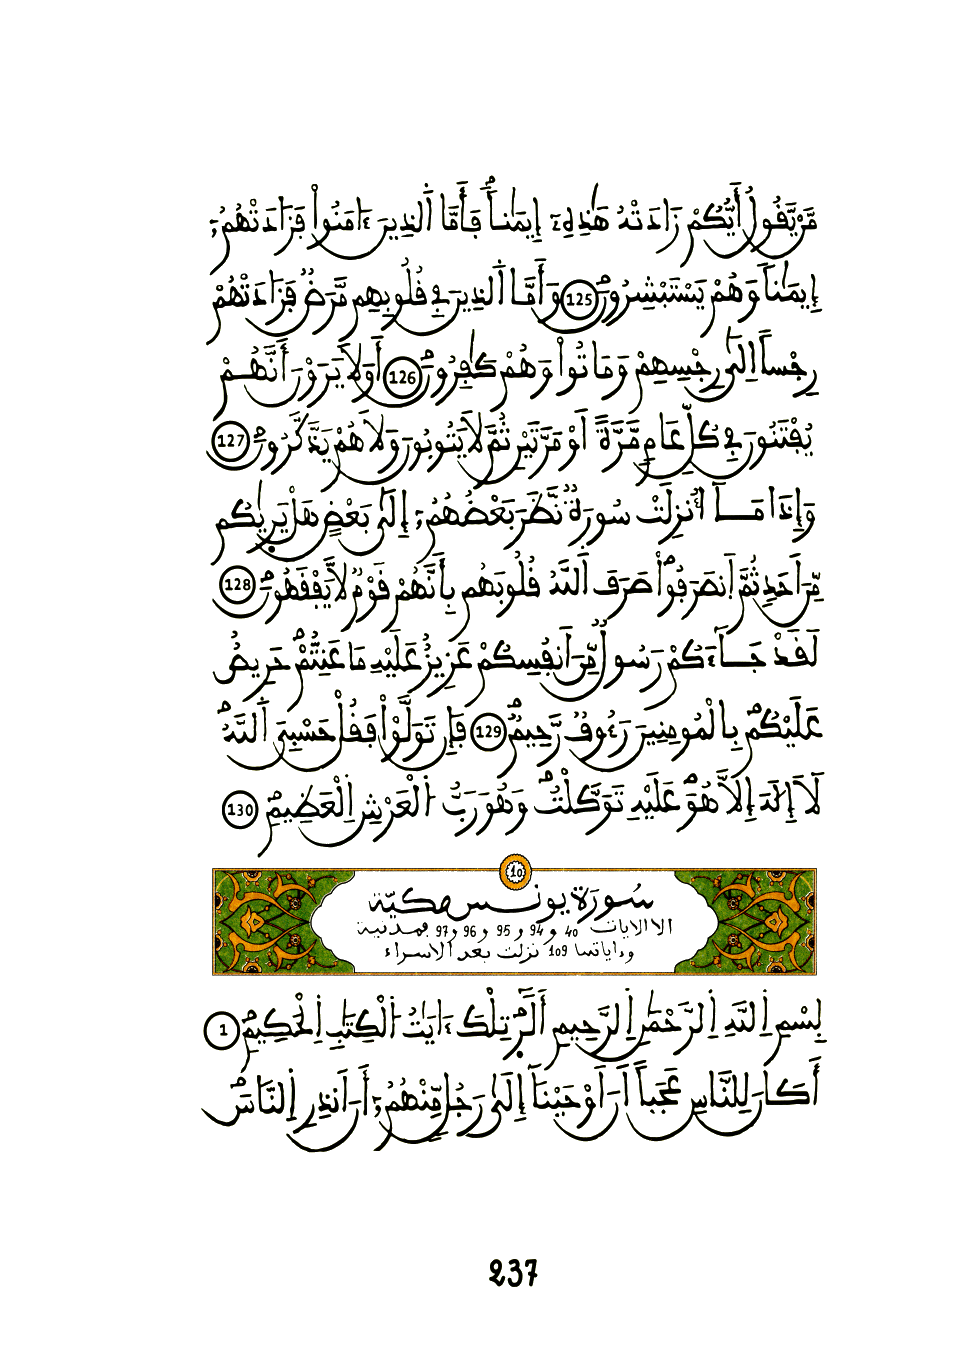 مَّنْ يَّقُولُ أَيُّكُمْ زَادَتْهُ هَٰذِهِۦٓ إِيمَٰناًۖ فَأَمَّا اَ۬لذِينَ ءَامَنُواْ فَزَادَتْهُمُۥٓ
إِيمَٰناٗ وَهُمْ يَسْتَبْشِرُونَۖ 125 وَأَمَّا اَ۬لذِينَ فِے قُلُوبِهِم مَّرَضٞ فَزَادَتْهُمْ
رِجْساً إِلَىٰ رِجْسِهِمْ وَمَاتُواْ وَهُمْ كَٰفِرُونَۖ 126 أَوَلَا يَرَوْنَ أَنَّهُمْ
يُفْتَنُونَ فِے كُلِّ عَامٖ مَّرَّةً أَوْ مَرَّتَيْنِ ثُمَّ لَا يَتُوبُونَ وَلَا هُمْ يَذَّكَّرُونَۖ 127
وَإِذَا مَآ أُنزِلَتْ سُورَةٞ نَّظَرَ بَعْضُهُمُۥٓ إِلَىٰ بَعْضٍ هَلْ يَر۪يٰكُم
مِّنَ اَحَدٖ ثُمَّ اَ۪نصَرَفُواْۖ صَرَفَ اَ۬للَّهُ قُلُوبَهُم بِأَنَّهُمْ قَوْمٞ لَّا يَفْقَهُونَۖ 128
لَقَدْ جَآءَكُمْ رَسُولٞ مِّنَ اَنفُسِكُمْ عَزِيزٌ عَلَيْهِ مَا عَنِتُّمْۖ حَرِيصٌ
عَلَيْكُمۖ بِالْمُومِنِينَ رَءُوفٞ رَّحِيمٞۖ 129 فَإِن تَوَلَّوْاْ فَقُلْ حَسْبِيَ اَ۬للَّهُۖ
لَآ إِلَٰهَ إِلَّا هُوَۖ عَلَيْهِ تَوَكَّلْتُۖ وَهُوَ رَبُّ اُ۬لْعَرْشِ اِ۬لْعَظِيمِۖ 130
10
سُورَة يونس مكيّة
الا الايات 40 و 94 و 95 و 96 و 97 فمدنية
وءاياتها 109 نزلت بعد الاسراء
بِسْمِ اِ۬للَّهِ اِ۬لرَّحْمَٰنِ اِ۬لرَّحِيمِ أَلَٓرۖ تِلْكَ ءَايَٰتُ اُ۬لْكِتَٰبِ اِ۬لْحَكِيمِۖ 1
أَكَانَ لِلنَّاسِ عَجَباً أَنَ اَوْحَيْنَآ إِلَىٰ رَجُلٖ مِّنْهُمُۥٓ أَنَ اَنذِرِ اِ۬لنَّاسَۖ
237